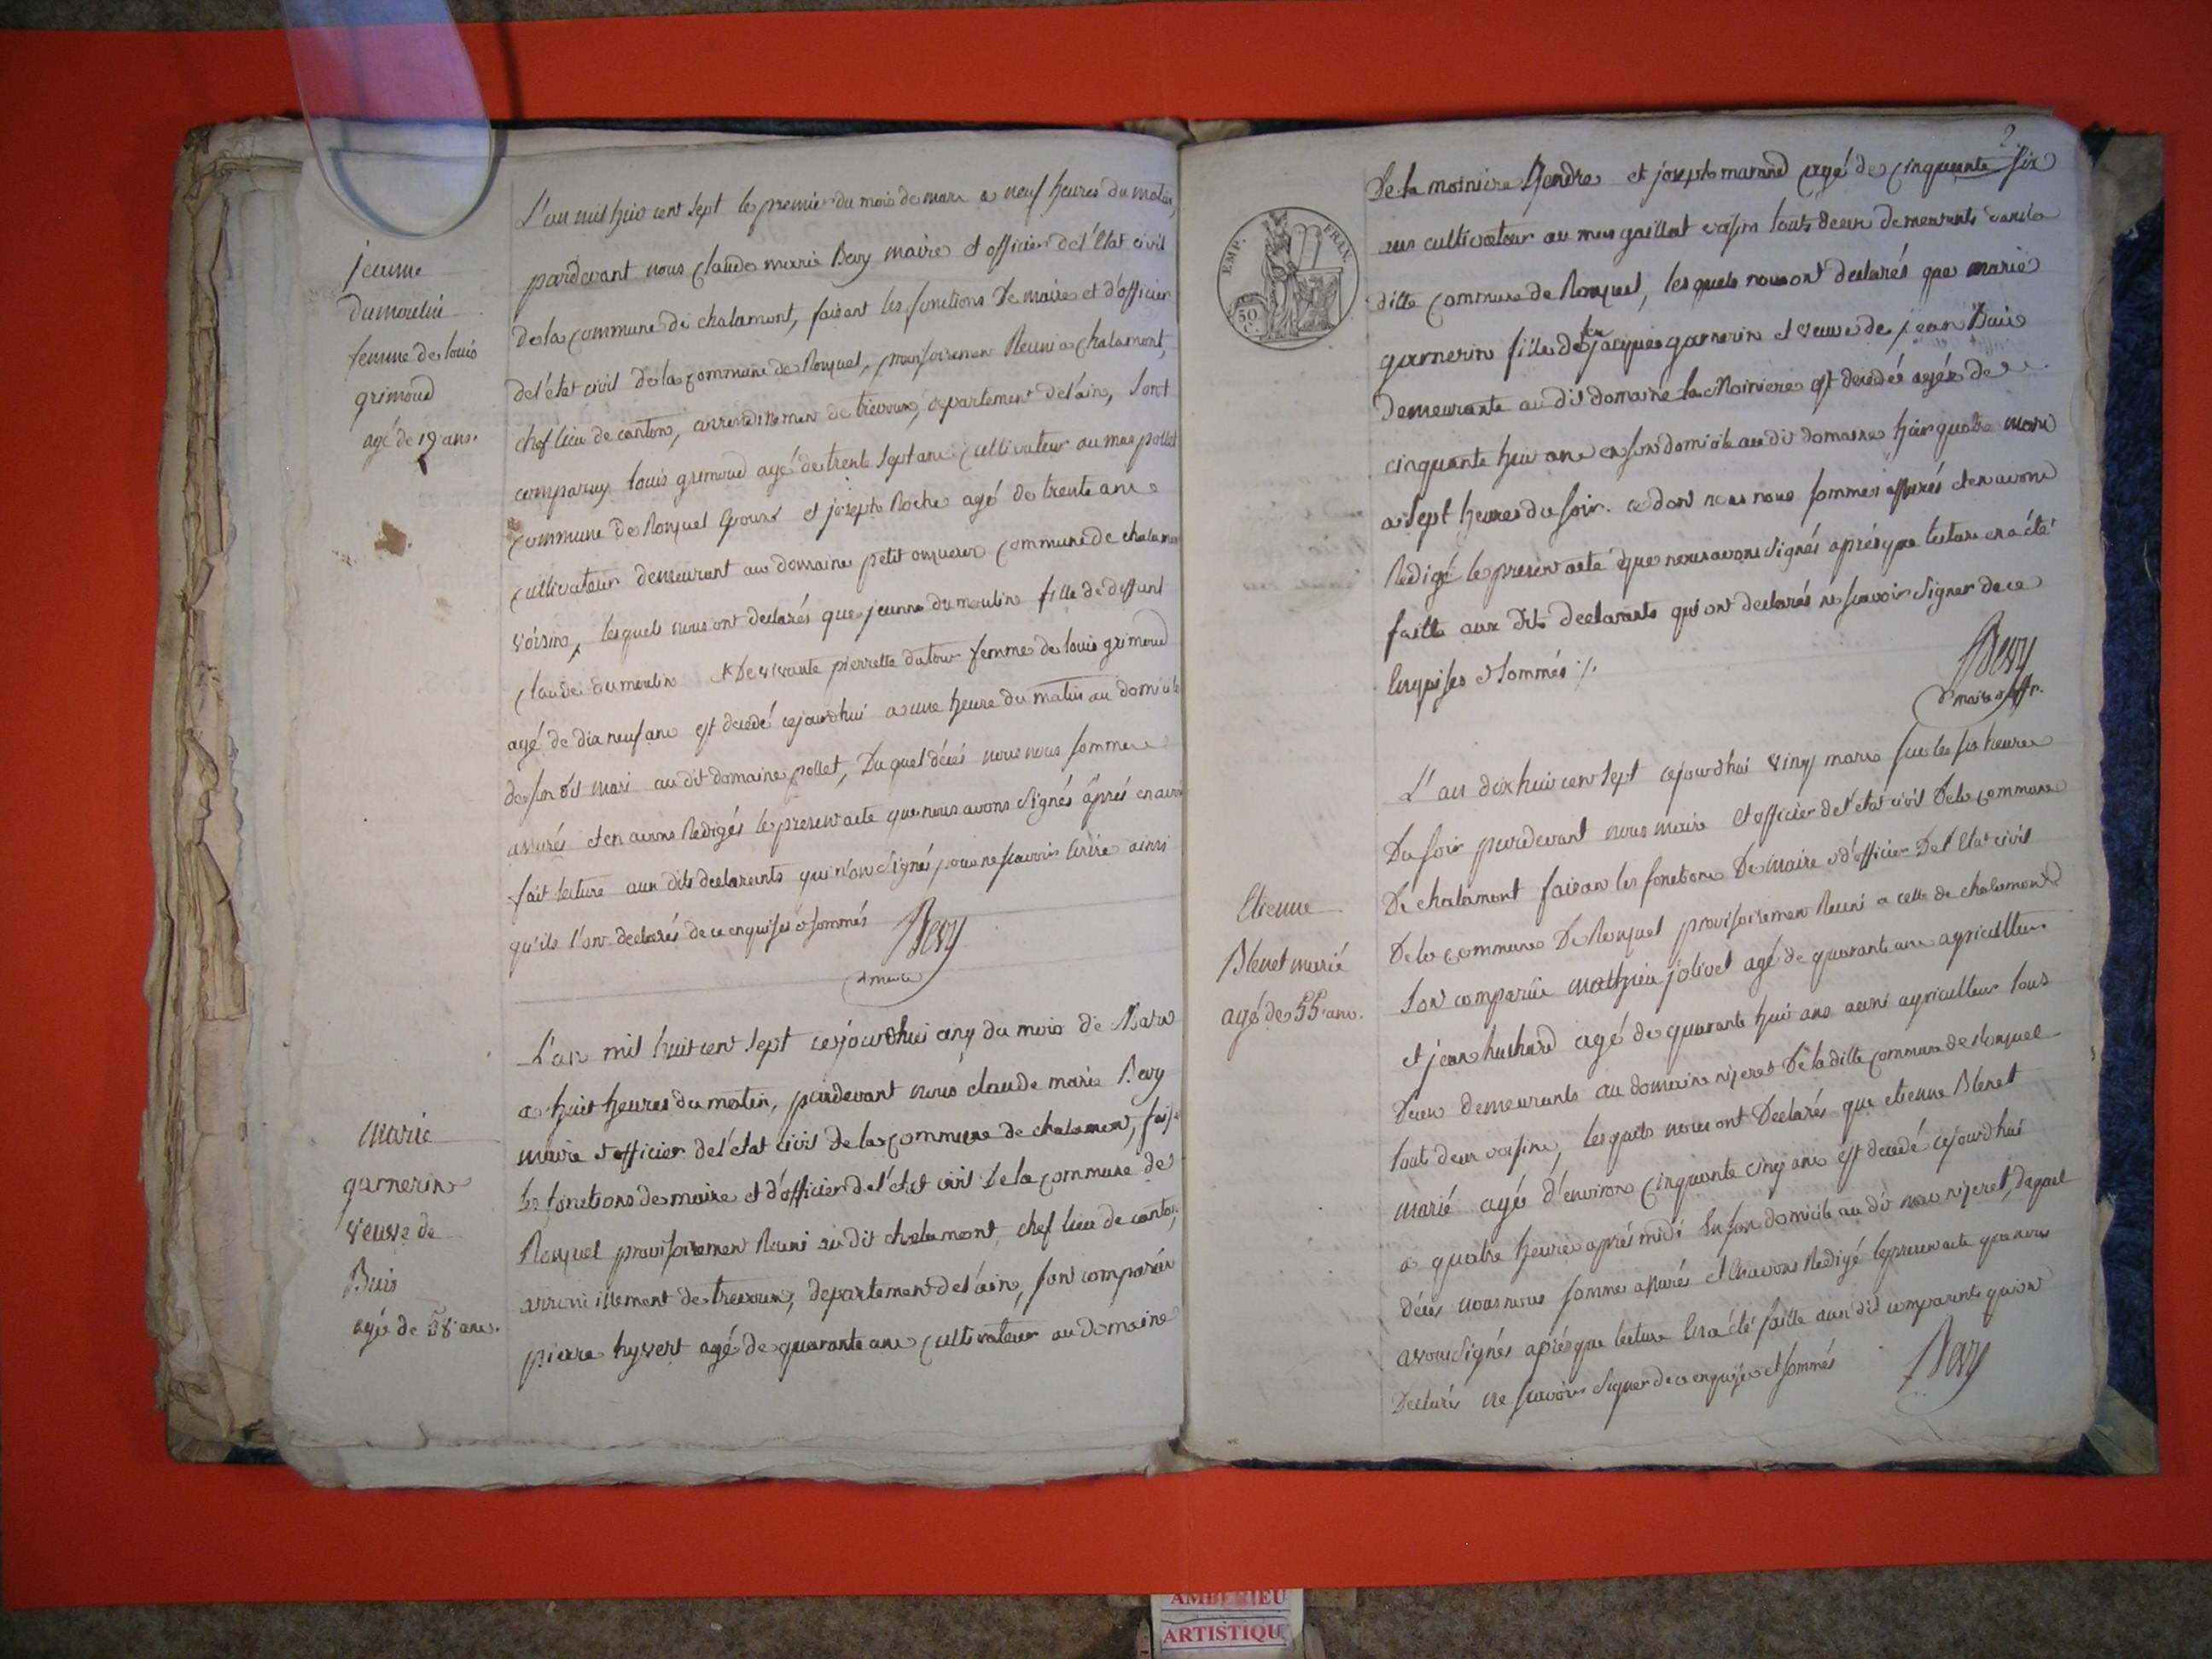 jeanne
dumoulin
femme de louis
grimoud
agé de 19 ans.
L'an mil huit cent sept le premier du mois de mars a neuf heures du matin,
pardevant nous claude marie Bevy maire et officier de l'Etat civil
de la commune de chalamont, faisant les fonctions De maire et d'officier
de l'état civil de la commune de Ronzuel, provisoirement Reuni a chalamont,
chef lieu de canton, arrondissement de trevoux, departement de l'ain, sont
comparus louis grimoud agé de trente sept ans cultivateur au mas pollet
commune de Ronzuel Epoux et joseph Roche agé de trente ans
cultivateur demeurant au domaine petit commune de chalamont
voisin, lesquels nous ont declarés que jeanne dumoulin fille de deffunt
claude dumoulin et De vivante pierrette dutour femme de louis grimoud
agé de dix neuf ans est decedé cejourdhui a une heure du matin au domicile
de son dit mari au dit domaine pollet, Du quel décés nous nous sommes
assurés et en avons Redigés le present acte que nous avons signés aprés en avoir
fait lecture aux dits declarants qui n'ont signés pour ne scavoir Ecrire ainsi
qu'ils l'ont declarés de ce enquises et sommés Bevy
maire
marie
garnerin
veuve de
Buis
agée de 58 ans.
L'an mil huit cent sept cejourdhui cinq du mois de Mars
a huit heures du matin, pardevant nous claude marie Bevy
maire et officier de l'etat civil de la commune de chalamont, fais
les fonctions de maire et d'officier de l'etat civil De la commune de
Ronzuel provisoirement Reuni au dit chalamont, chef lieu de canton,
arrondissement de trevoux, departement de l'ain, sont comparus
pierre hyvert agé de quarante ans cultivateur au domaine
2
De la moiniere Gendre et joseph marand agé de cinquante six
ans cultivateur au mas gaillat voisin touts deux demeurants dans la
ditte commune de Ronzuel, lesquels nous ont declarés que marie
garnerin fille de feu jacques garnerin et veuve de jean Buis
demeurante au dit domaine la Moiniere est decedée agée de
cinquante huit ans en son domicile au dit domaine hier quatre mars
a sept heures du soir. ce dont nous nous sommes assurés et en avons
Redigé le present acte que nous avons signés aprés que lecture en a été
faitte aux dits declarants qui ont declarés ne scavoir signer de ce
Enquises et sommés
Bevy
maire et offr.
EMP. FRAN.
50
C.
Etienne
Blenet marié
agé de 55 ans.
L'an dix huit cent sept cejourdhui vingt mars sur les six heures
Du soir pardevant nous maire et officier de l'etat civil De la commune
De chalamont faisant les fonctions De Maire et d'officier De l'Etat civil
De la commune De Ronzuel provisoirement Reuni a celle de chalamont
Sont comparus Mathieu jolivet agé de quarante ans agriculteur
et jean huchard agé de quarante huit ans agriculteur tous
Deux demeurants au domaine nizeret De la ditte commune de Ronzuel
touts deux voisins, lesquels nous ont Declarés que etienne Blenet
marié agé d'environ cinquante cinq ans est decedé cejourdhui
a quatre heures aprés midi En son domicile au dit mas nizeret, duquel
décés nous nous sommes assurés et En avons Redigé le present acte que nous
avons signés aprés que lecture En a été faitte aux dits comparants qui ont
Declarés ne scavoir signer de ce enquises et sommés Bevy
AMBERIEU
ARTISTIQU